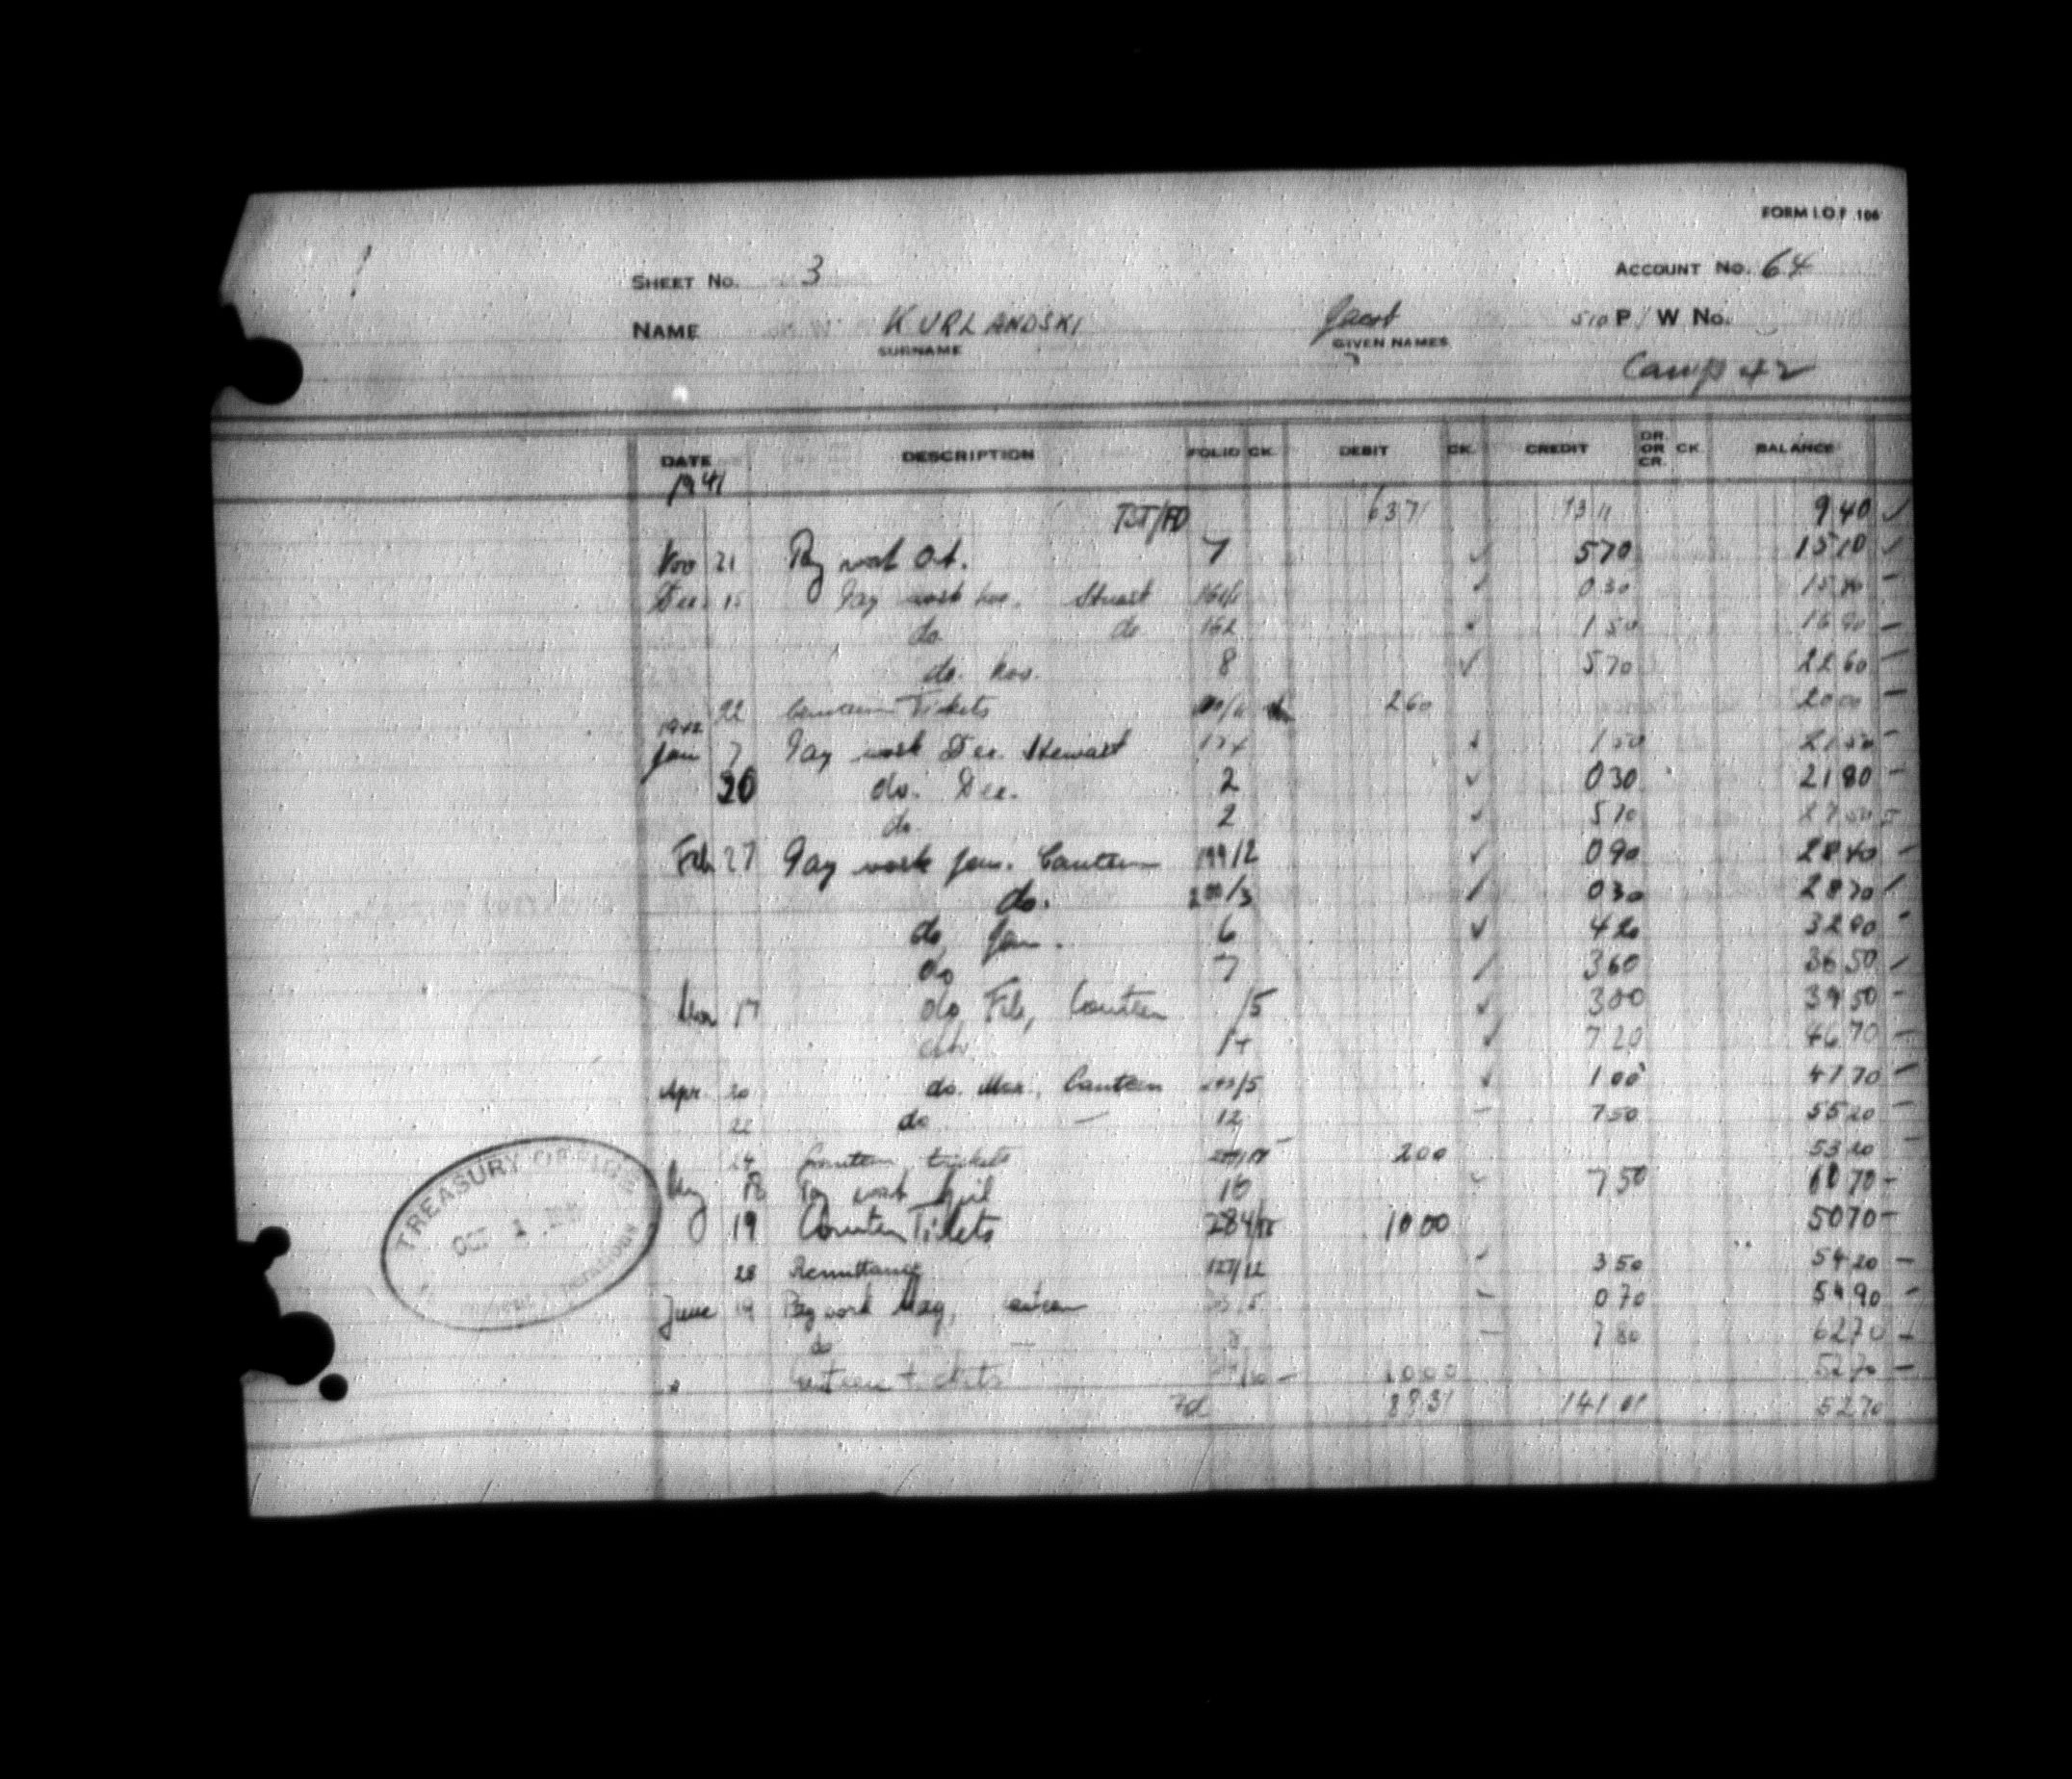 FORM I.O.F. 106
SHEET No. 3 ACCOUNT No. 64
NAME KURLANDSKI 510 P/W No.
SURNAME GIVEN NAMES
Camp 42
DATE DESCRIPTION FOLIO CK. DEBIT CK. CREDIT DR. OR CR. CK. BALANCE
1941
6371 7311 940 ✓
Nov 21 Pay work Oct. 7 ✓ 570 1510 ✓
Dec. 15 Pay work Nov. ✓ 030 –
do. do 162 ✓ 150 1690 –
do. Nov. 8 ✓ 570 2260 –
22 Canteen Tickets 260 2000 –
1942
Jan 7 Pay work Dec. Stewart ✓ 150 2150 –
20 do. Dec. 2 ✓ 030 2180 –
do. 2 ✓ 510
Feb 27 Pay work Jan. Canteen 199/2 ✓ 090 2840 –
do. 200/3 ✓ 030 2870 ✓
do Jan. 6 ✓ 420 3290 –
do 7 ✓ 360 3650 ✓
Mar 17 do Feb, Canteen /5 ✓ 300 3950 –
do. 14 ✓ 720 4670 –
Apr. 20 do. Mar., Canteen /5 ✓ 100 4770 –
22 do – 12 – 750 5520 –
24 Canteen tickets 200 5320 –
May 18 Pay work April 16 750 6070 –
19 Canteen Tickets 1000 5070 –
28 Remittance ✓ 350 5420 –
June 19 Pay work May, canteen – 070 5490 –
do – 8 – 780 6270 –
Canteen tickets 1000 5270 –
8831 14101 5270
TREASURY OFFICE
OCT 1